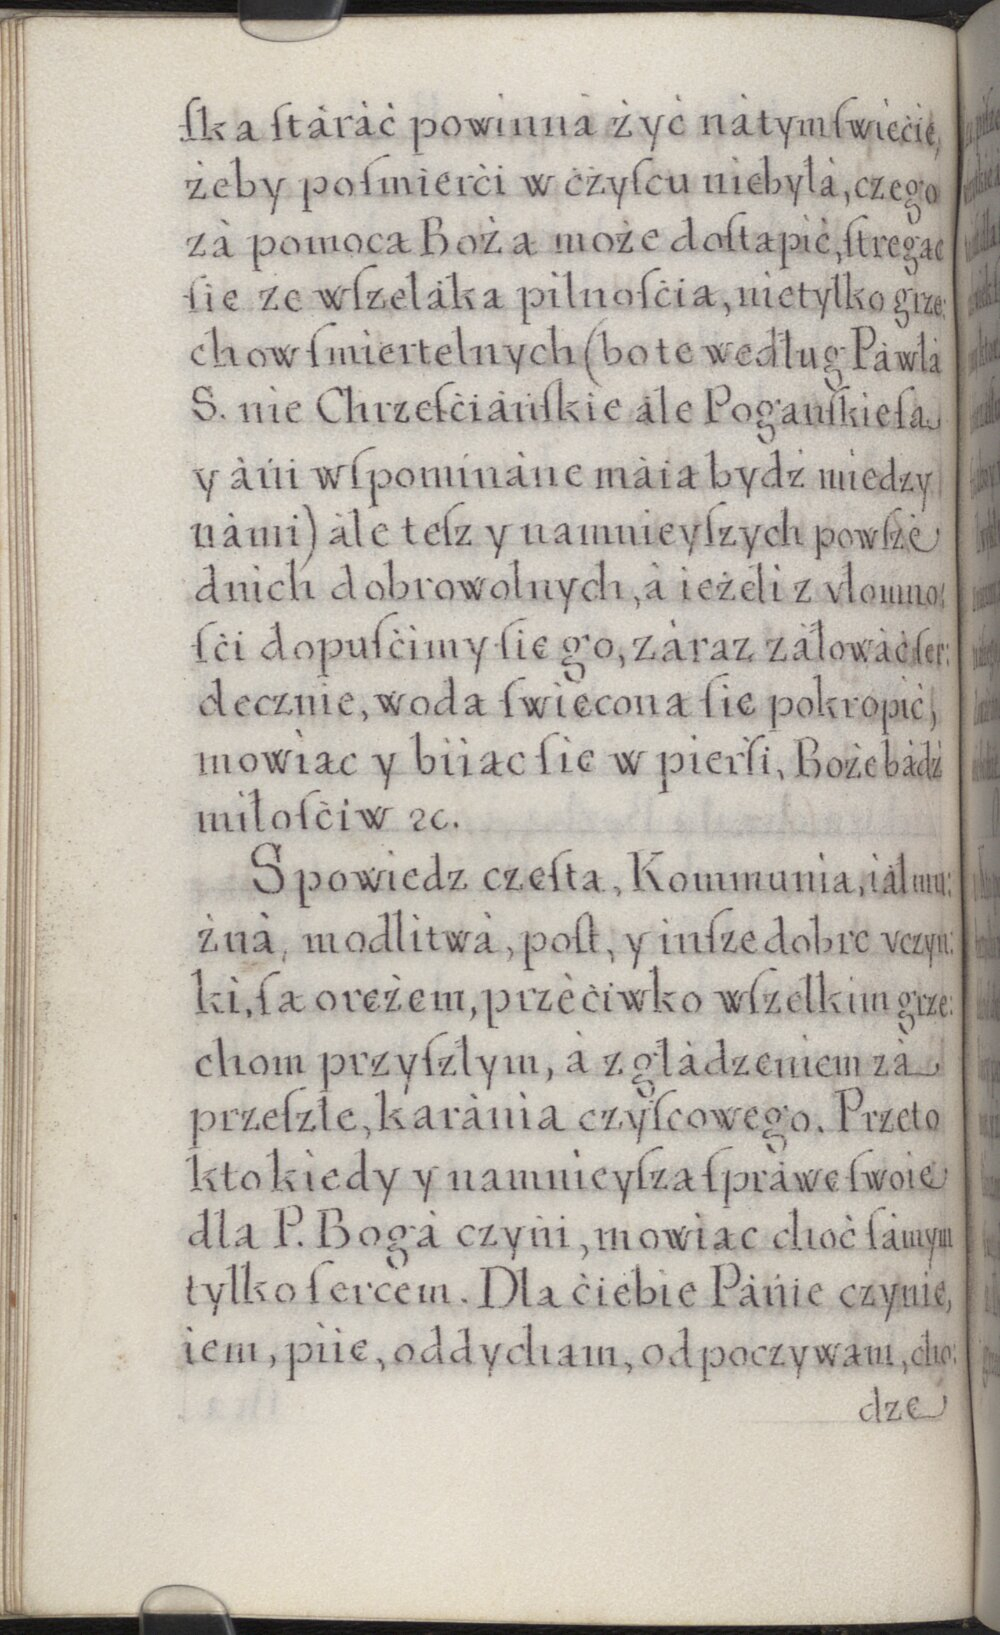 ſka ſtàràċ powinna żyċ nàtymſwieċie,
żeby poſmierċi w ċżyſcu niebylà, czego
zà pomoca Boża może doſtapiċ, ſtregac
ſie ze wſzelàka pilnoſċia, nietylko grze:
chow ſmiertelnych (bo te według Pàwłà
S. nie Chrzeſċiàńſkie àle Poganſkie ſa
y àńi wſpominàne màia bydż miedzy
nàmi) àle teſz y namnieyſzych powſże
dnich dobrowolnych, à ieżeli z vlomno:
ſċi dopuſċimy ſie go, zàraz zàłowàċ ſer:
decznie, woda ſwiecona ſie pokropiċ,
mowiac y biiac ſie w pierṡi, Boże bàdż
miłoſċiw ꝛc.
Spowiedz czeſta, Kommunia, iàłmu:
żnà, modlitwà, poſt, y inſze dobre vczyn:
ki, ſa oreżem, przèċiwko wſzelkim grze:
chom przyſzłym, à zgłàdzeniem zà
przeſzłe, karània czyſcowego. Przeto
kto kiedy y namnieyſza ſpràwe ſwoie
dla P. Bogà czyńi, mowiac choċ ſàmym
tylko ſercem. Dla ċiebie Pàńie czynie,
iem, piie, oddycham, odpoczywam, cho:
dze